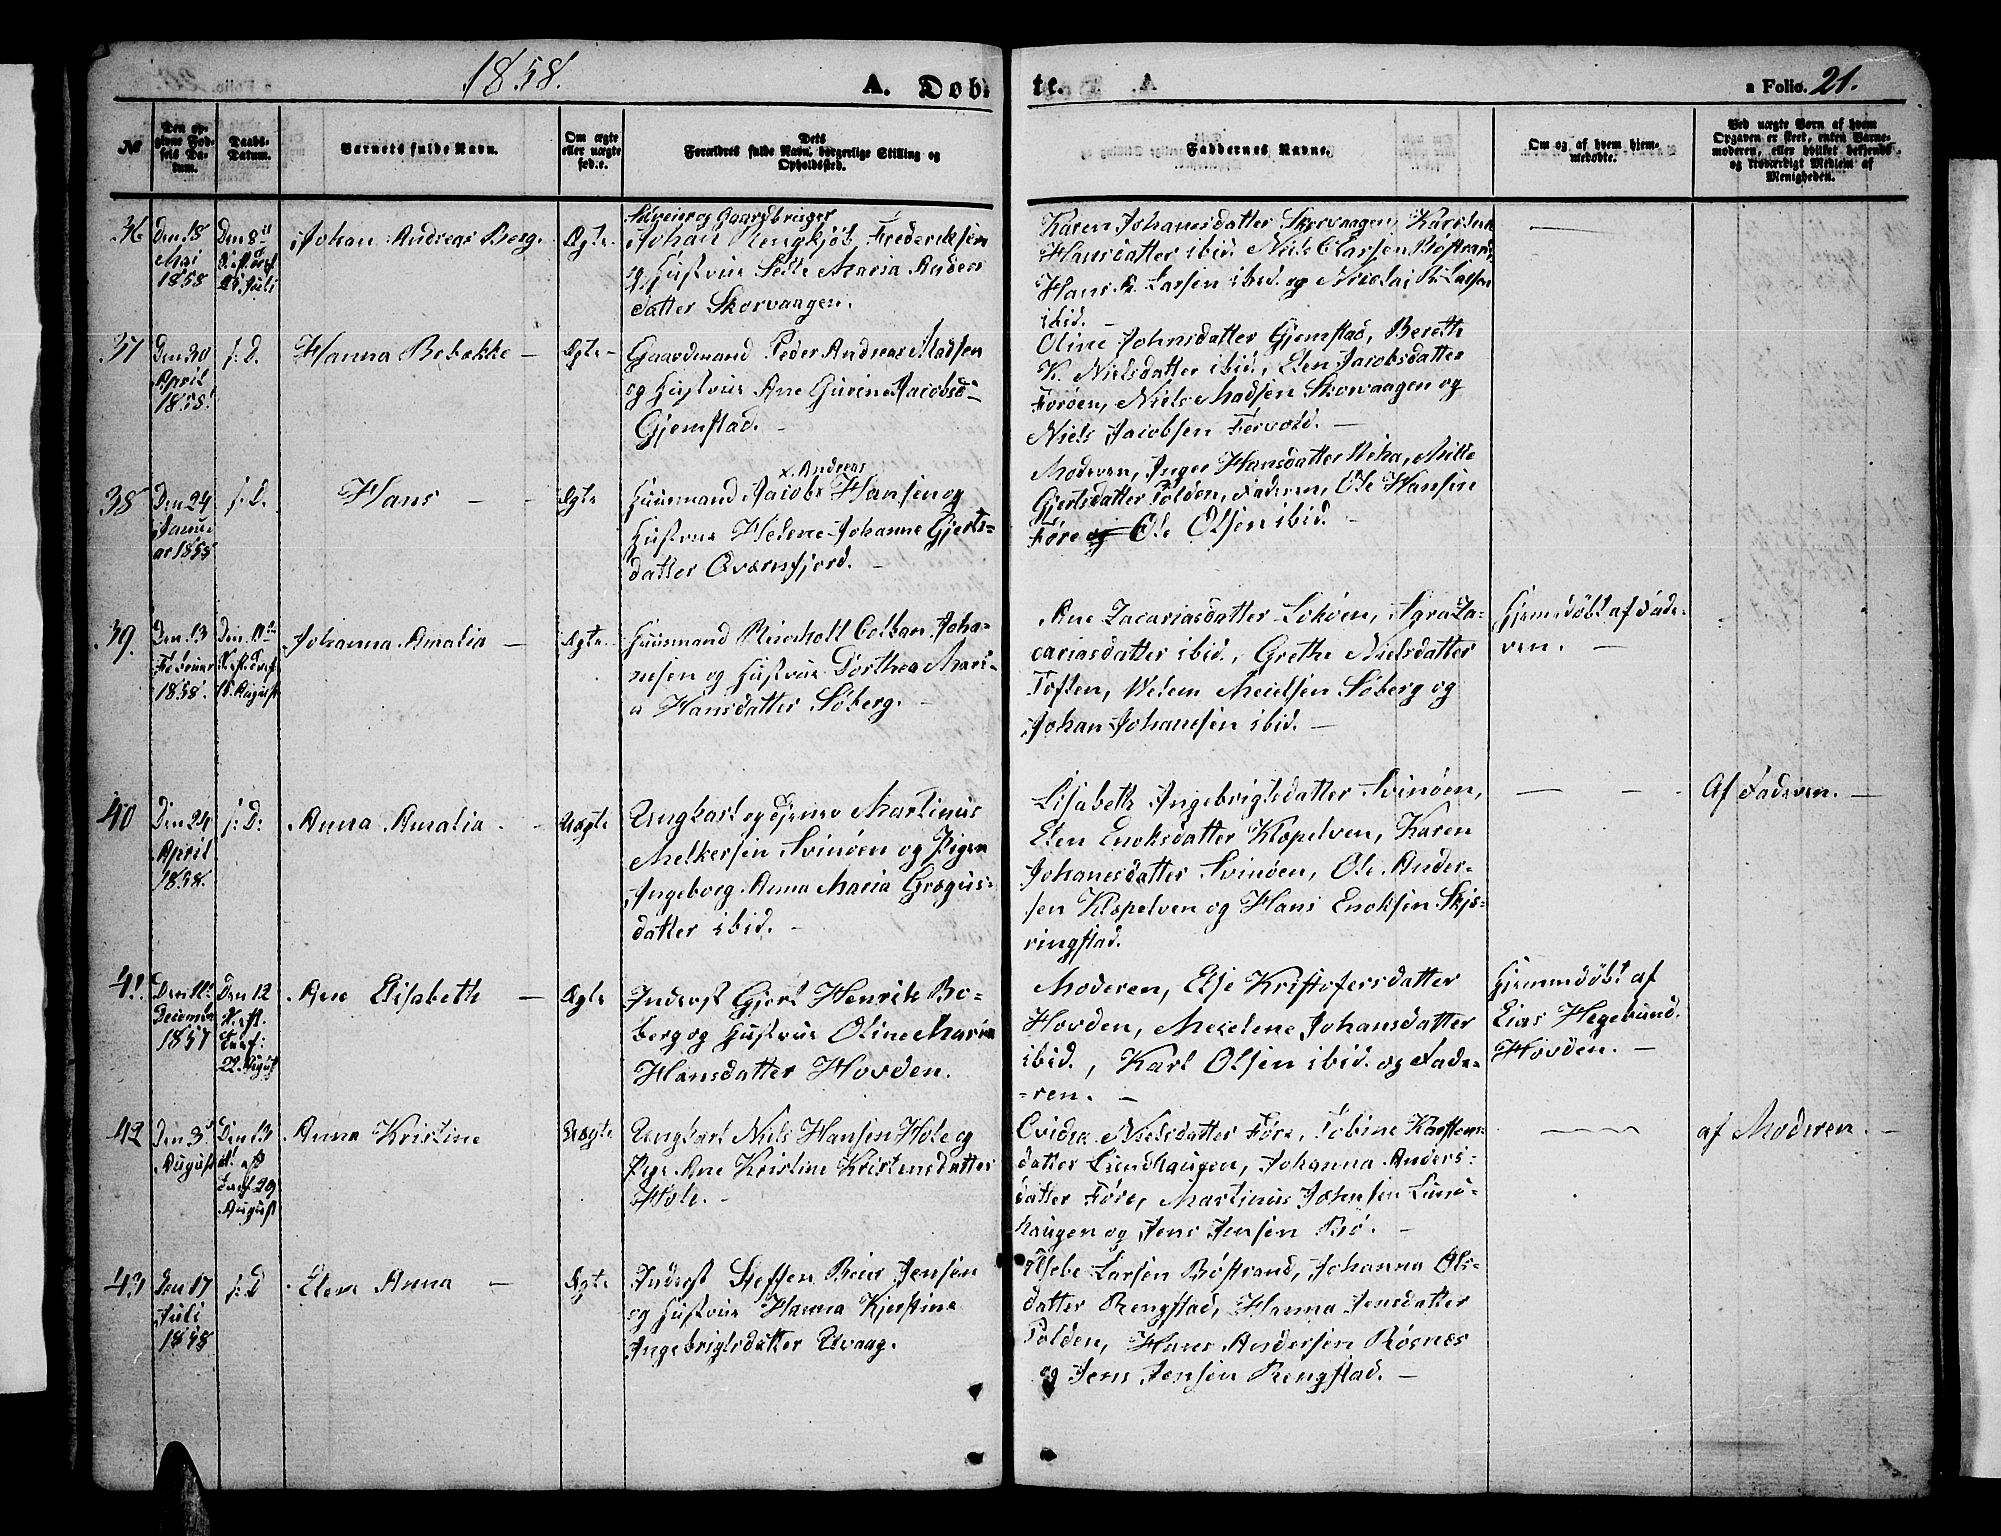 1858.
A. Døb=
te.
a Folio. 21.
№
Den op-
givne Fød-
sels Da-
tum.
Daabs-
Datum.
Barnets fulde Navn.
Om ægte
eller uægte
født.
Dets
Forældres fulde Navn, borgerlige Stilling og
Opholdssted.
Faddernes Navne.
Om og af hvem hjem-
medøbte.
Ved uægte Børn af hvem
Opgaven er skeet, enten Barne-
moderen, eller hvilket bekjendt
og troværdigt Medlem af
Menigheden.
36
Den 18
Mai
1858
Den 8de
25 Juli
Johan Andreas Berg.
Ægte
Selveier og Gaardbruger
Johan Rengkjøb Frederiksen
og Hustrue Sette Maria Anders
datter Skorvaagen.
Karen Johansdatter Skorvaagen, Karstine
Hansdatter ibid. Niels C Larsen Bøstrand,
Hans R. Larsen ibid. og Nicolai R. Larsen
ibid. -
37
Den 30
April
1858.
s: D.
Hanna Rebække -
Ægte -
Gaardmand Peder Andreas Madsen
og Hustrue Ane Gurine Jacobsd-
Gjemstad. -
Oline Johnsdatter Gjemstad, Bereth
K. Nielsdatter ibid., Elen Jacobsdatter
Forøen, Niels Madsen Skorvaagen og
Niels Jacobsen Førvold. -
38
Den 24
Janu-
ar 1858
s: D.
Hans - -
Ægte
x. Andreas
Huusmand Jacob x Hansen og
Hustrue Helene Johanna Gjerts-
datter Qværnfjord. -
Moderen, Inger Hansdatter Risha, Mille
Gjertsdatter Polden, Faderen, Ole Hansen
Føre og Ole Olsen ibid. -
39.
Den 13
Februar
1858.
Den 11te
15. August
Johanna Amalia -
Ægte.
Huusmand Rinholt Colban Joha-
nesen og Hustrue Dorthea Mari-
a Hansdatter Søberg. -
Ane Zacariasdatter Lokøen, Agra Za-
cariasdatter ibid., Grethe Nielsdatter
Toften, Welem Meielsen Søberg og
Johan Johanesen ibid. -
Hjemedøbt af Fade-
ren. -
40
Den 24
April
1858.
s: D:
Anna Amalia -
Uægte
Ungkarl og Tjener Martinus
Melkersen Svinøen og Pigen
Ingeborg Anna Maria Græqus-
datter ibid. -
Lisabeth Ingebrigtsdatter Svinøen,
Elen Enoksdatter Klæpelven, Karen
Johanesdatter Svinøen, Ole Ander-
sen Klæpelven og Hans Enoksen Skjø-
ringstad.
Af Faderen. -
41
Den 11te
December
1857
Den 12
S. eft.
Tref:
22. August
Ane Elisabeth -
Ægte
Inderst Gjert Henrik Bo-
berg og Hustrue Oline Maria
Hansdatter Hovden.
Moderen, Else Kristofersdatter
Hovden, Meselene Johansdatter
ibid., Karl Olsen ibid. og Fade-
=ren. -
Hjemmedøbt af
Eias Hegelund
Hovden. -
42
Den 3
August
Den 13
S. eft
Tref 29
August
Anna Kristine
Uægte
Ungkarl Niels Hansen Hole og
Pige Ane Kristine Kristensdatter
Hole. -
Ovidea Nielsdatter Føre, Tobine Karstens-
datter Lundhaugen, Johanna Anders-
datter Føre, Martinus Johnsen Lund-
haugen og Jens Jensen Bø. -
af Moderen. -
43
Den 17
Juli
1858
s: D
Elen Anna -
Ægte
Inderst Steffen Beier Jensen
og Hustrue Hanna Kjerstina
Ingebrigtsdatter Uvaag.
Elsebe Larsen Bøstrand, Johanna Ols-
datter Rengstad, Hanna Jensdatter
Polden, Hans Andersen Røsnæs
og Jens Jensen Rengstad. -